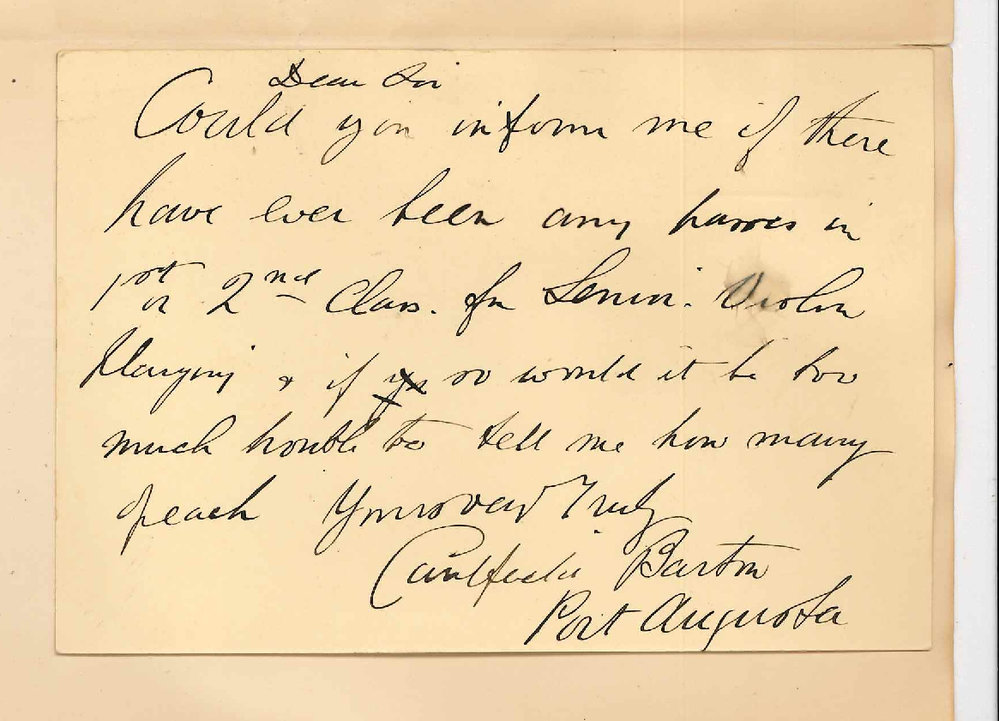 Dear Sir
Could you inform me if there
have ever been any passes in
1st or 2nd Class. for Senior. Violin
Playing & if so would it be too
much trouble to tell me how many
of each Yours very Truly
Caulfeild Barton
Port Augusta